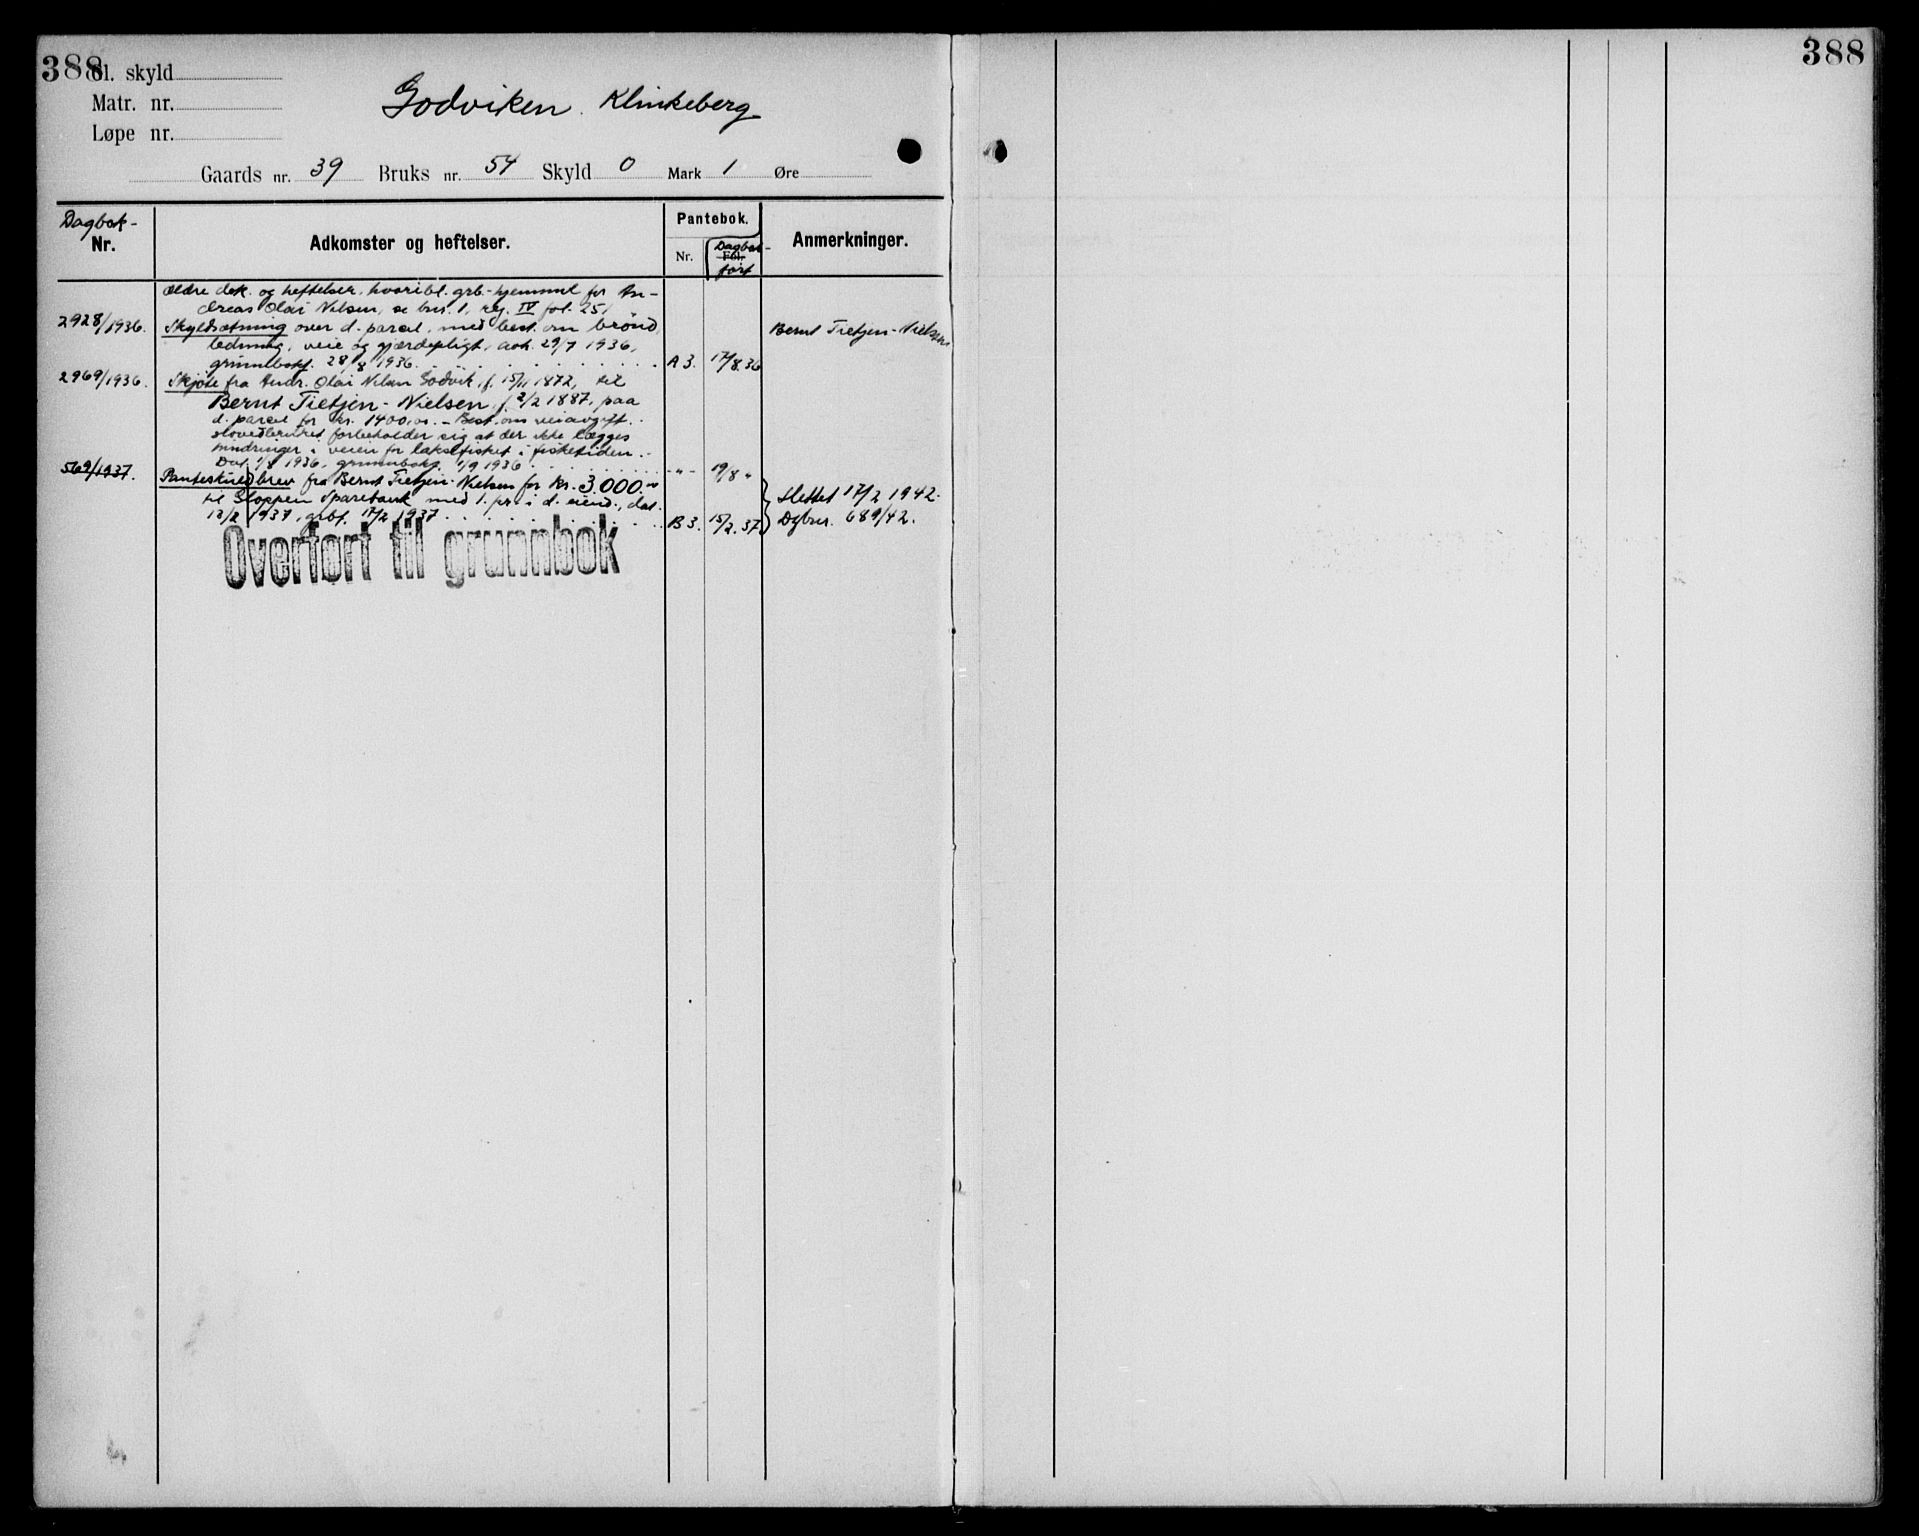 388
388
Gl. skyld
Matr. nr.
Løpe nr.
Godviken. Klinkeberg
Gaards nr. 39 Bruks nr. 54 Skyld 0 Mark 1 Øre
Dagbok-
Nr.
Adkomster og heftelser.
Pantebok.
Nr.
Fol.
Dagbok-
ført
Anmerkninger.
Ældre dok. og heftelser, hvoribl. grb.-hjemmel for An-
dreas Olai Nilsen, se bnr. 1, reg. IV fol. 251
2928/1936. Skyldsætning over d. parcel, med best. om brønd,
Bernt Tietjen-Nielsen
ledning, veie og gjærdepligt, avh. 29/7 1936,
grunnbokf. 28/8 1936. A 3. 17/8.36
2969/1936. Skjøte fra Andr. Olai Nilsen Godvik, f. 15/11 1872, til
Bernt Tietjen-Nielsen, f. 2/2 1887, paa
d. parcel for kr. 1400,00. - Best. om veiavgift.
Hovedbruket forbeholder sig at der ikke lægges
hindringer i veien for laksefisket i fisketiden. -
Dat. 1/8 1936, grunnbokf. 1/9 1936 - " - 19/8 "
569/1937. Panteskyldbrev fra Bernt Tietjen-Nielsen for kr. 3.000.00
til Gloppen Sparebank med 1. pr. i d. eiend., dat.
13/2 1937, grbf. 17/2 1937 B 3. 15/2.37
Slettet 17/2 1942.
Dgbnr. 689/42.
Overført til grunnbok